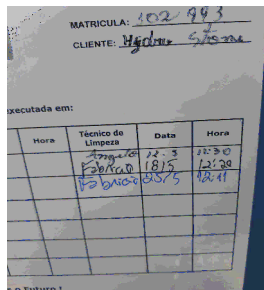 MATRICULA: 102 993
CLIENTE: Hydro Stone
executada em:
Hora Técnico de Limpeza Data Hora
Angelo 12-3 12:30
Fabricio 18/5 12:20
Fabricio 25/5 12:11
o Futuro !